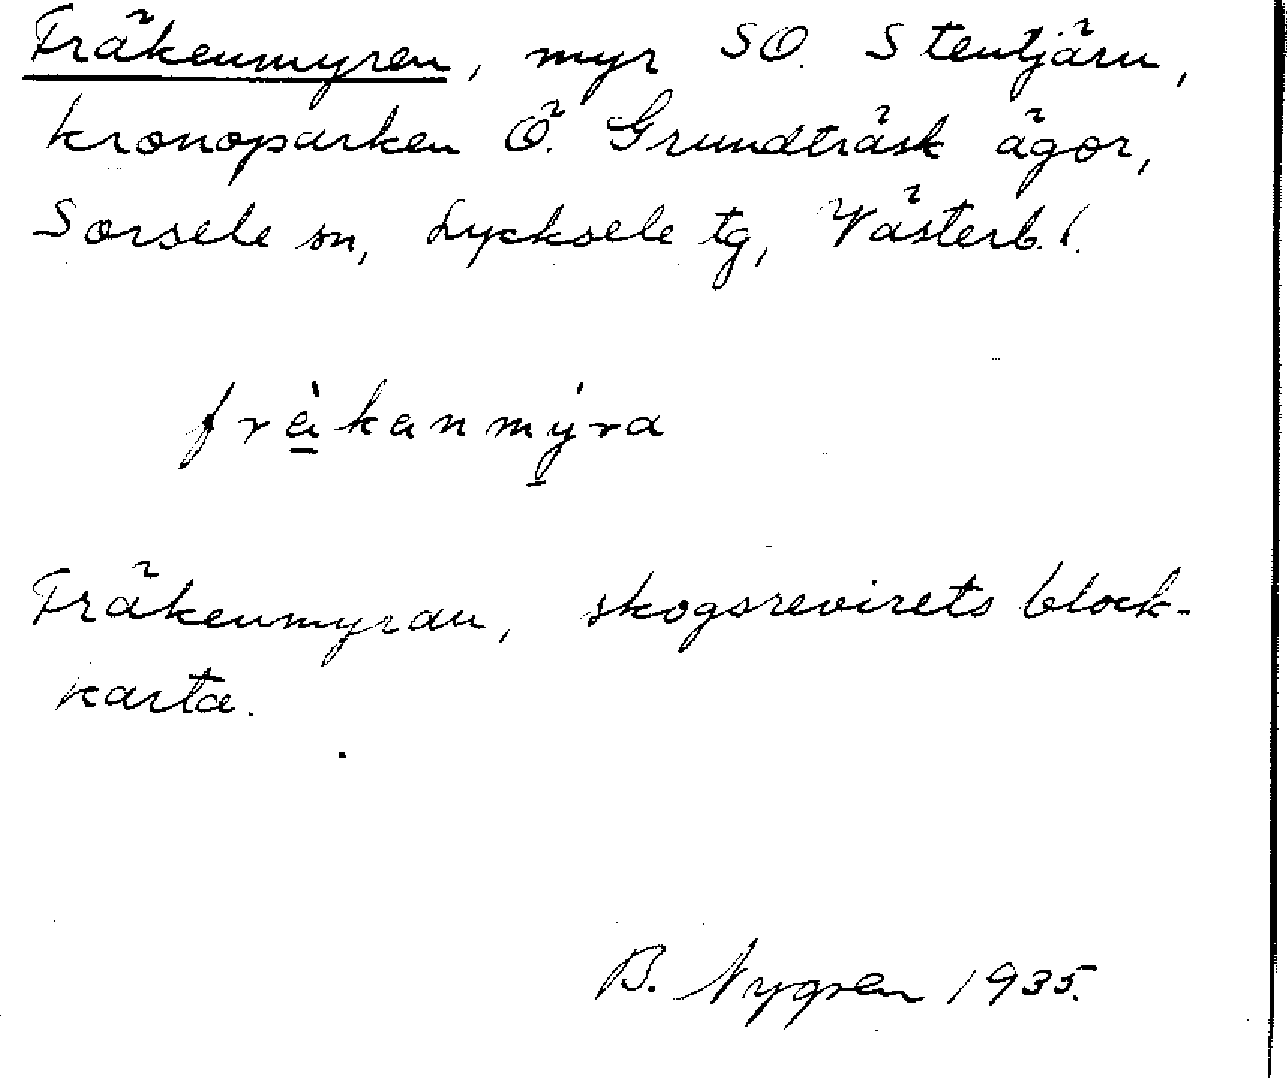 Fräkenmyren, myr SO. Stentjärn,
kronoparken Ö. Grundträsk ägor,
Sorsele sn, Lycksele tg, Västerb. l.
fràkanmýra
Fräkenmyran, skogsrevirets block-
karta.
B. Nygren 1935.